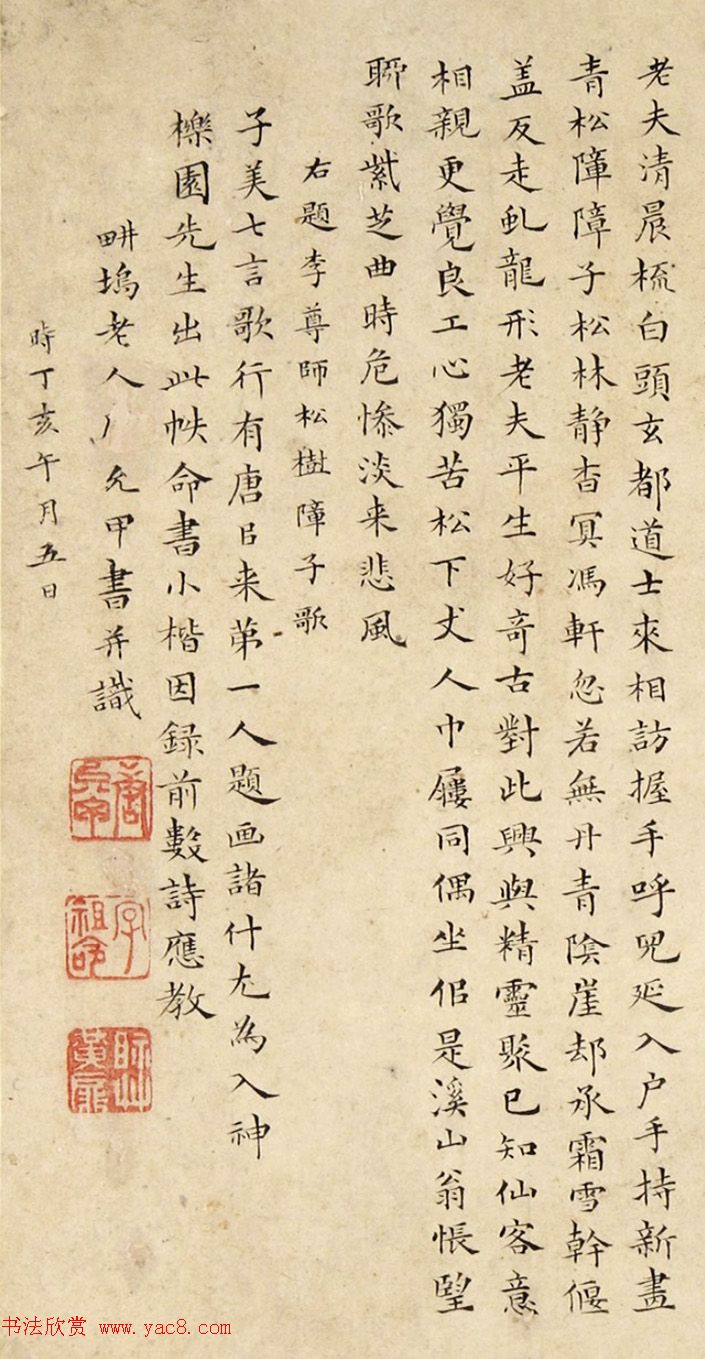 老夫清晨梳白頭玄都道士來相訪握手呼兒延入户手持新畫
青松障障子松林靜杳冥馮軒忽若無丹青陰崖却承霜雪幹偃
盖反走虬龍形老夫平生好奇古對此興與精靈聚已知仙客意
相親更覺良工心獨苦松下丈人巾屨同偶坐佀是溪山翁悵望
聊歌紫芝曲時危慘淡来悲風
右題李尊師松樹障子歌
子美七言歌行有唐㠯来第一人題画諸什尤為入神
櫟園先生出此帙命書小楷因録前數詩應教
畊塢老人允甲書并識
時丁亥午月五日
唐允甲
字祖命
书法欣赏 www.yac8.com